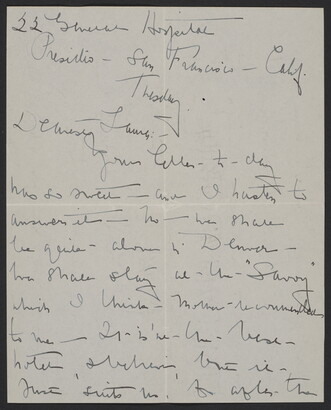 General Hospital
Presidio - San Francisco - Calif.
Tuesday
Dearest Laura -
Your letter - to - day
was so sweet - and I hasten to
answer it - No - we shall
be quite - alone in Denver -
We shall stay at - the "Savoy"
which I think - Mother recommended
to me - It - is'nt - the - best -
hotel, I believe, but it -
just suits us, for after the